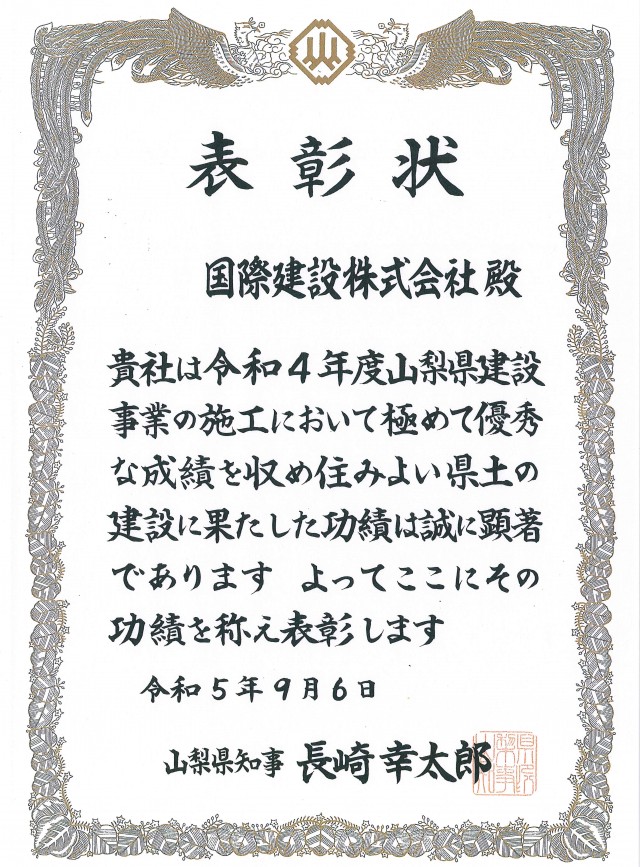 表彰状
国際建設株式会社 殿
貴社は令和4年度山梨県建設
事業の施工において極めて優秀
な成績を収め住みよい県土の
建設に果たした功績は誠に顕著
であります よってここにその
功績を称え表彰します
令和5年9月6日
山梨県知事 長崎幸太郎